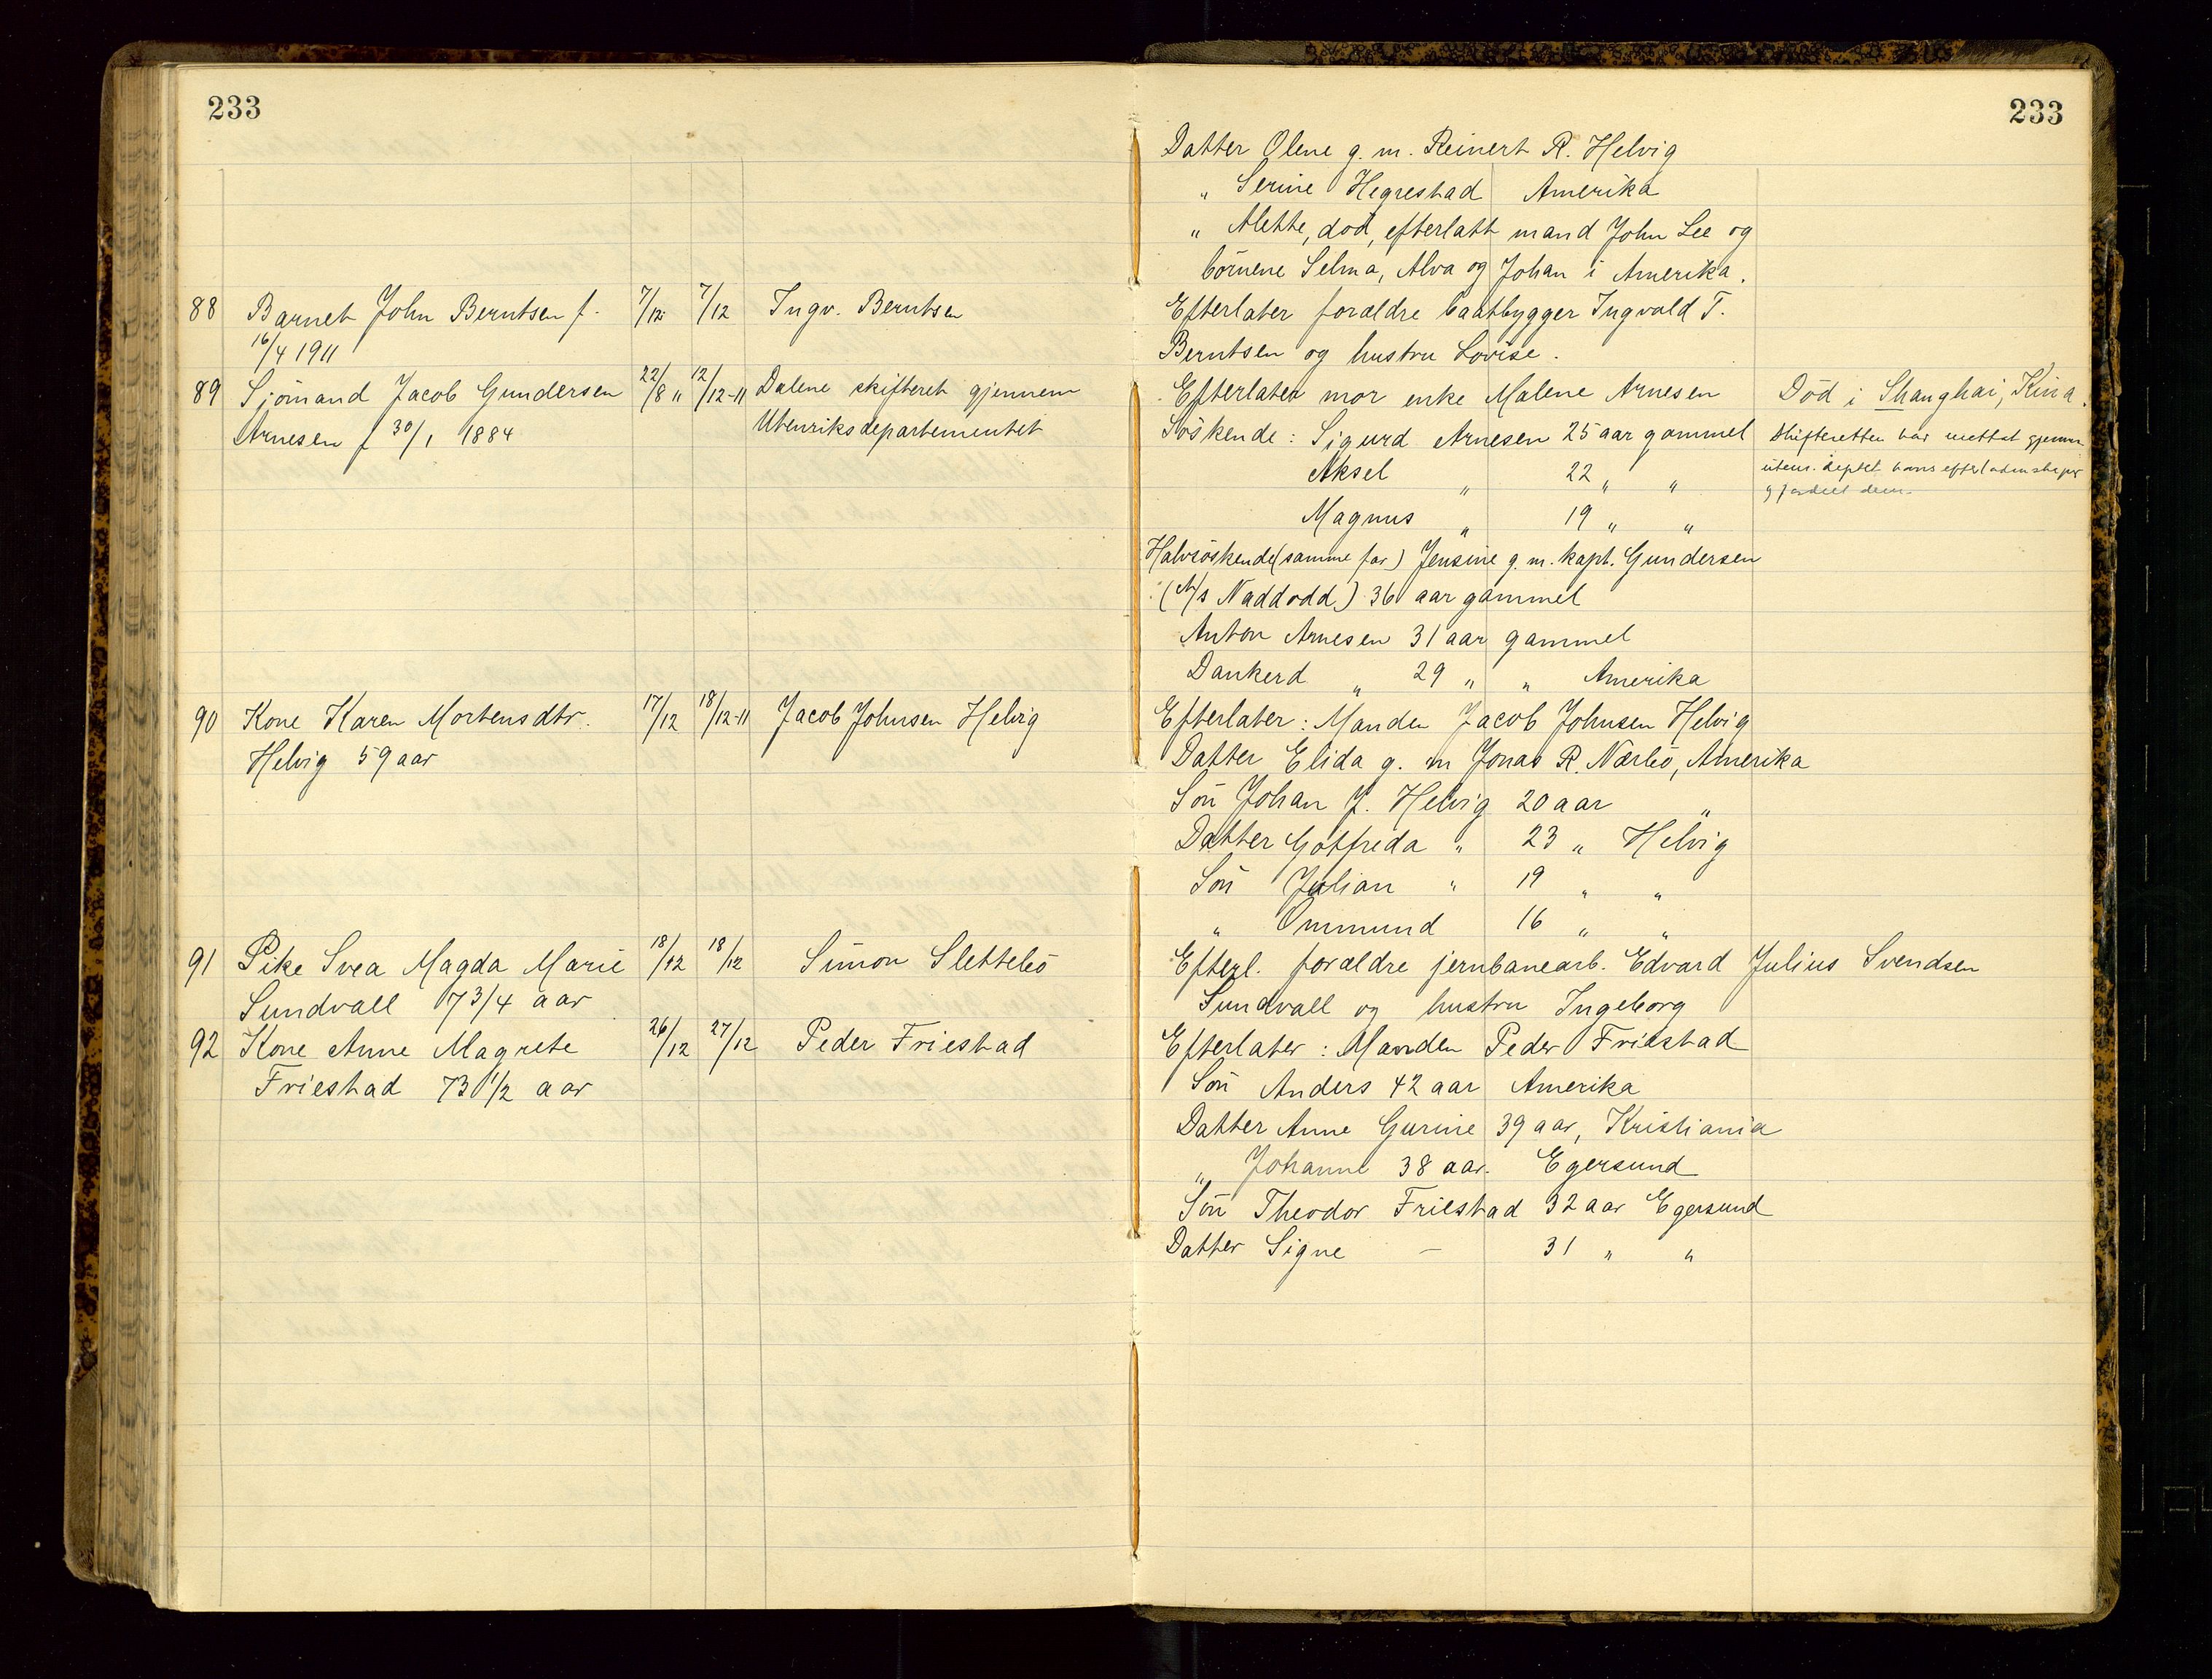 233
88 Barnet John Berntsen f. 7/12 7/12 Ingv. Berntsen
16/4 1911
89 Sjömand Jacob Gundersen 22/8 " 12/12-11 Dalene skifteret gjennem
Arnesen f 30/1 1884 Utenriksdepartementet
90 Kone Karen Mortensdtr. 17/12 18/12-11 Jacob Johnsen Helvig
Helvig 59 aar
91 Pike Svea Magda Marie 18/12 18/12 Simon Slettebö
Sundvall 7 3/4 aar
92 Kone Anne Magrete 26/12 27/12 Peder Friestad
Friestad 73 1/2 aar
233
Datter Olene g. m. Reinert R. Helvig
" Serine Hegrestad Amerika
" Alette, död, efterlatt mand John Lee og
börnene Selma, Alva og Johan i Amerika.
Efterlater forældre baatbygger Ingvald T.
Berntsen og hustru Lovise.
Efterlater mor enke Malene Arnesen Död i Shanghai, Kina.
Söskende: Sigurd Arnesen 25 aar gammel Skifteretten har mottat gjennem
Aksel " 22 " " utenr. deptet hans efterladenskaper
og fordelt dem.
Magnus " 19 " "
Halvsöskende (samme far) Jensine g. m. kapt. Gundersen
(A/s Naddodd) 36 aar gammel
Anton Arnesen 31 aar gammel
Dankerd " 29 " " Amerika
Efterlater: Manden Jacob Johnsen Helvig
Datter Elida g. m Jonas R. Nærbö, Amerika
Sön Johan J. Helvig 20 aar "
Datter Gotfreda " 23 " Helvig
Sön Julian " 19 " "
" Ommund 16 " "
Efterl. forældre jernbanearb. Edvard Julius Svendsen
Sundvall og hustru Ingeborg
Efterlater: Manden Peder Friestad
Sön Anders 42 aar Amerika
Datter Anne Gurine 39 aar, Kristiania
" Johanne 38 aar. Egersund
Sön Theodor Friestad 32 aar Egersund
Datter Signe — 31 " "